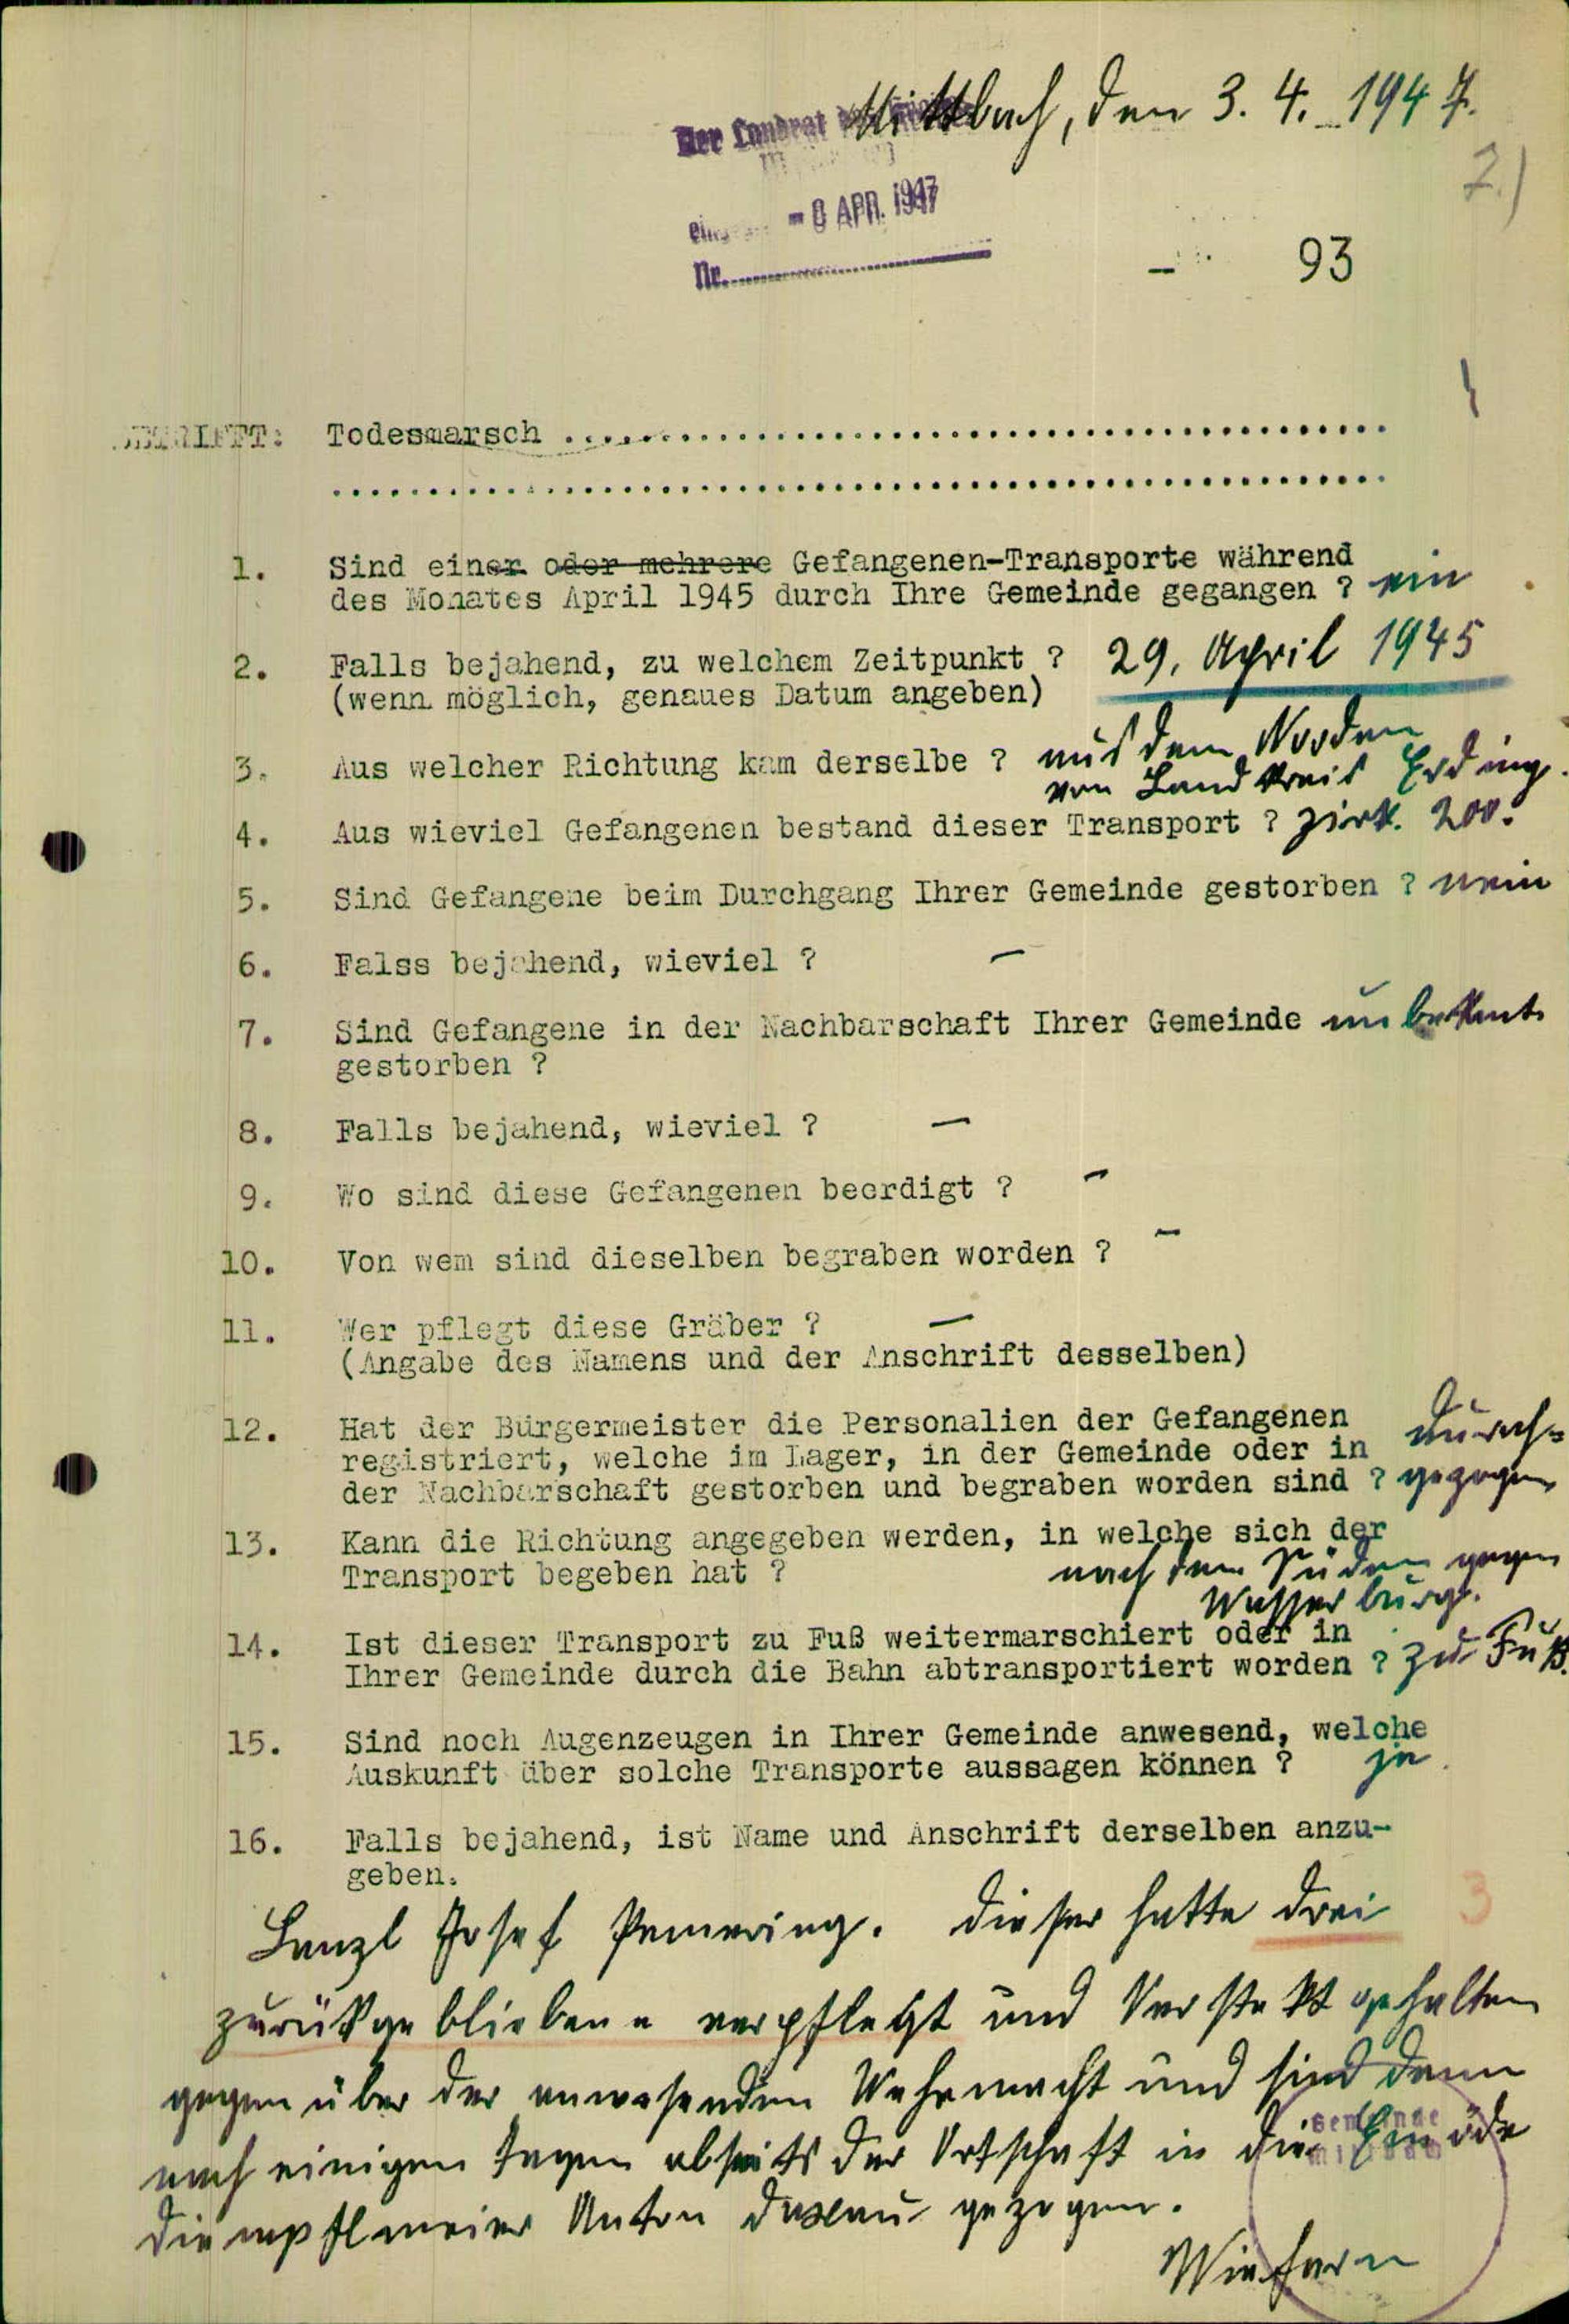 Mittbach, den 3. 4. 1947.
Der Landrat
2.)
- 8 APR. 1947
Nr.
93
BETRIFFT: Todesmarsch
1. Sind einer oder mehrere Gefangenen-Transporte während
des Monates April 1945 durch Ihre Gemeinde gegangen ? ein
2. Falls bejahend, zu welchem Zeitpunkt ? 29. April 1945
(wenn möglich, genaues Datum angeben)
3. Aus welcher Richtung kam derselbe ? aus dem Norden
von Landkreis Erding.
4. Aus wieviel Gefangenen bestand dieser Transport ? zirk. 200.
5. Sind Gefangene beim Durchgang Ihrer Gemeinde gestorben ? nein
6. Falss bejahend, wieviel ? –
7. Sind Gefangene in der Nachbarschaft Ihrer Gemeinde unbekant.
gestorben ?
8. Falls bejahend, wieviel ? –
9. Wo sind diese Gefangenen beerdigt ? –
10. Von wem sind dieselben begraben worden ? –
11. Wer pflegt diese Gräber ? –
(Angabe des Namens und der Anschrift desselben)
12. Hat der Bürgermeister die Personalien der Gefangenen durch=
registriert, welche im Lager, in der Gemeinde oder in
der Nachbarschaft gestorben und begraben worden sind ? gezogen
13. Kann die Richtung angegeben werden, in welche sich der
Transport begeben hat ? nach dem Süden gegen
Wasserburg.
14. Ist dieser Transport zu Fuß weitermarschiert oder in
Ihrer Gemeinde durch die Bahn abtransportiert worden ? zu Fuß.
15. Sind noch Augenzeugen in Ihrer Gemeinde anwesend, welche
Auskunft über solche Transporte aussagen können ? ja
16. Falls bejahend, ist Name und Anschrift derselben anzu-
geben.
Lanzl Josef Pemering. dieser hatte drei
3
zurükgebliebene verpflegt und Verstekt gehalten
gegenüber der anwesenden Wehrmacht und sind dann
nach einigen tagen abseits der Ortschaft in die Einöde
Gemeinde
Diempflmeier Anton Daxau gezogen.